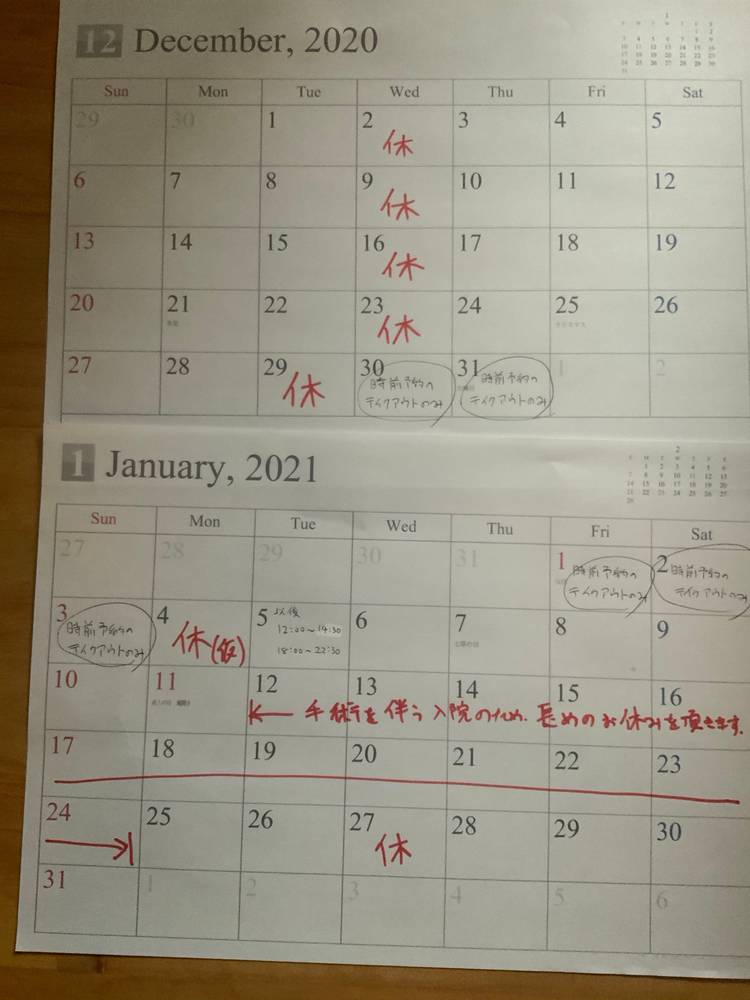 12 December, 2020
Sun Mon Tue Wed Thu Fri Sat
29 30 1 2 3 4 5
休
6 7 8 9 10 11 12
休
13 14 15 16 17 18 19
休
20 21 22 23 24 25 26
休
クリスマス
27 28 29 30 31 1 2
休
時前予約の
テイクアウトのみ
時前予約の
テイクアウトのみ
1 January, 2021
Sun Mon Tue Wed Thu Fri Sat
27 28 29 30 31 1 2
時前予約の
テイクアウトのみ
時前予約の
テイクアウトのみ
3 4 5 6 7 8 9
時前予約の
テイクアウトのみ
休(仮)
以後
12:00〜14:30
18:00〜22:30
10 11 12 13 14 15 16
手術を伴う入院のため、長めのお休みを頂きます。
17 18 19 20 21 22 23
24 25 26 27 28 29 30
休
31 1 2 3 4 5 6